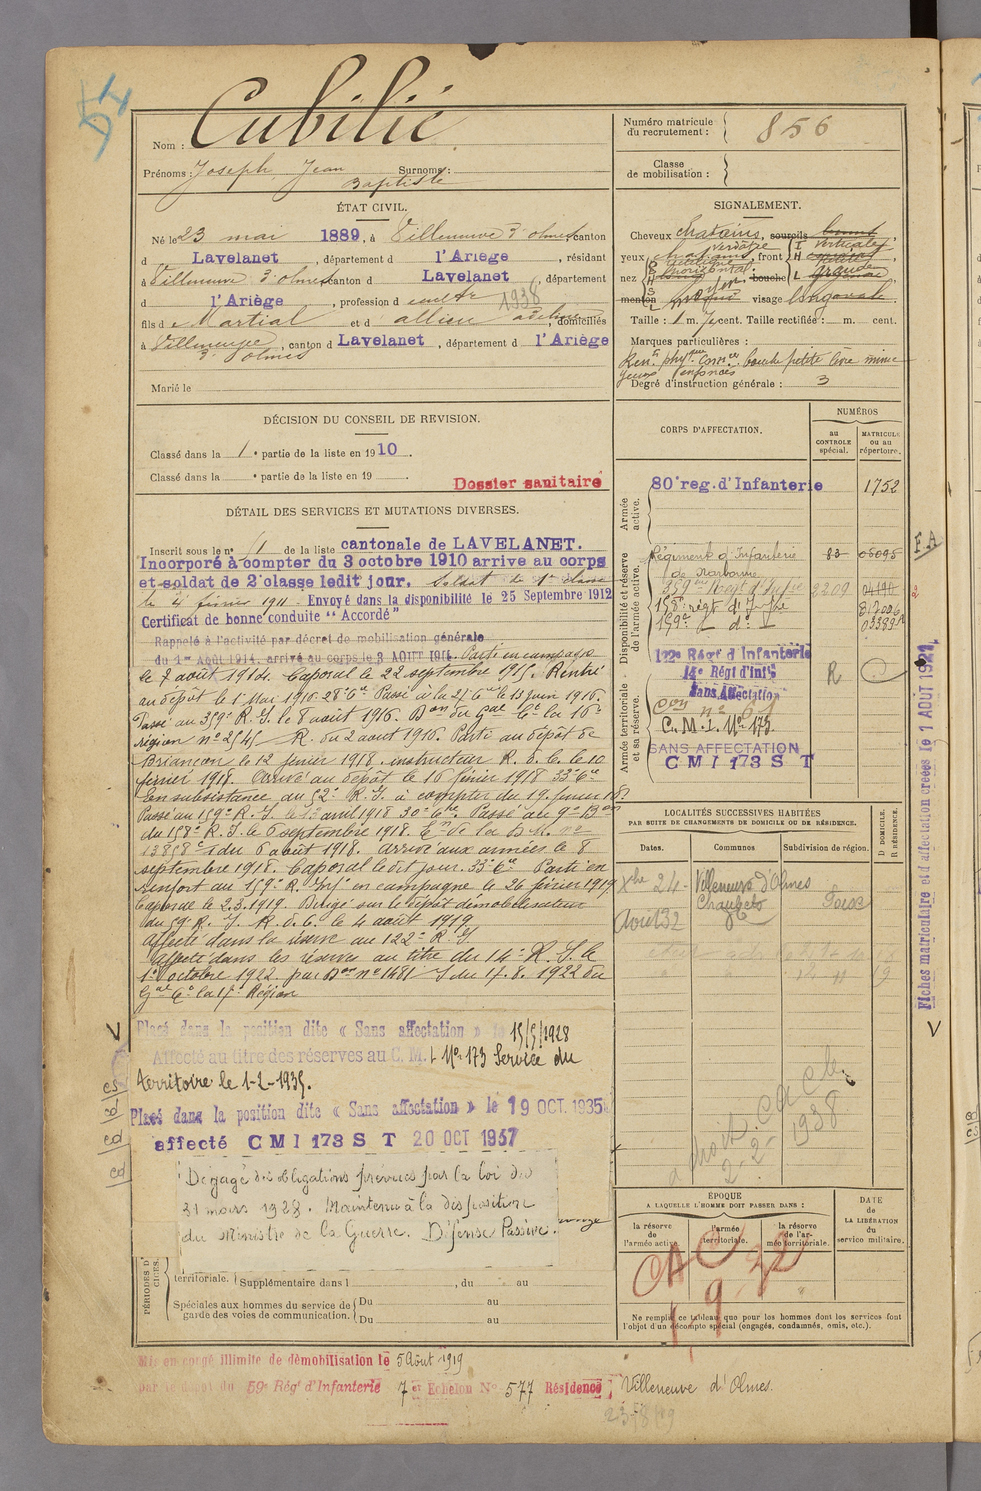 Nom : Cubilié
Prénoms : Joseph Jean Baptiste Surnoms :
ÉTAT CIVIL.
Né le 23 mai 1889, à Villeneuve d'olmes, canton
d Lavelanet, département d l'Ariège, résidant
à Villeneuve d'olmes canton d Lavelanet, département
d l'Ariège, profession d cultr 1938
fils d e Martial et d allieu adeline, domiciliés
à Villeneuve d'olmes, canton d Lavelanet, département d l'Ariège
Marié le
DÉCISION DU CONSEIL DE REVISION.
Classé dans la 1e partie de la liste en 1910.
Classé dans la e partie de la liste en 19 .
Dossier sanitaire
DÉTAIL DES SERVICES ET MUTATIONS DIVERSES.
Inscrit sous le n° 11 de la liste cantonale de LAVELANET.
Incorporé à compter du 3 octobre 1910 arrive au corps
et soldat de 2e classe ledit jour. Soldat de 1e classe
le 4 février 1911. Envoyé dans la disponibilité le 25 Septembre 1912
Certificat de bonne conduite "Accordé"
Rappelé à l'activité par décret de mobilisation générale
du 1er Août 1914, arrivé au corps le 3 AOUT 1914. Parti en campagne
le 7 août 1914. Caporal le 22 septembre 1915. Rentré
au dépôt le 1 Mai 1916. 28e Cie Passé à la 25 Cie le 13 juin 1916.
Passé au 359e R. I. le 8 août 1916. Don du Gal Ct la 16e
région n° 2545 R. du 2 août 1916. Parti au dépôt de
Briançon le 12 février 1918. instructeur R. d. C. le 10
février 1918. Arrivé au dépôt le 16 février 1918 33e Cie
En subsistance au 52e R. I. à compter du 19 février 1918
Passé au 159e R. I. le 13 avril 1918 30e Cie. Passé au 9e Bon
du 158e R. I. le 6 septembre 1918. Con de la D.M. n°
13858 du 6 août 1918. Arrivé aux armées le 8
septembre 1918. Caporal ledit jour. 33e Cie Parti en
renfort au 159e R. Infie en campagne le 26 février 1919
Caporal le 2.3.1919. Dirigé sur le dépôt démobilisateur
du 59e R. I. R. d. C. le 4 août 1919
Affecté dans la réserve au 122e R. I.
Affecté dans les réserves au titre du 14e R. I. le
1er octobre 1922. par Don n° 1481 du 17.8.1922 du
Gal Ct la 17e Région
Placé dans la position dite « Sans affectation » le 15/5/1928
Affecté au titre des réserves au C. M. I N° 173 Service du
territoire le 1-2-1935.
Placé dans la position dite « Sans affectation » le 19 OCT. 1935
affecté CMI 173 S T 20 OCT 1937
Dégagé des obligations prévues par la loi du
31 mars 1928. Maintenu à la disposition
du Ministre de la Guerre. Défense Passive.
PÉRIODES D
CICES.
territoriale. Supplémentaire dans l , du au
Spéciales aux hommes du service de garde des voies de communication. Du au
Du au
Mis en congé illimité de démobilisation le 5 Août 1919
par le dépôt du 59e Régt d'Infanterie 7e Echelon N° 577 Résidence Villeneuve d'Olmes.
Numéro matricule du recrutement : 856
Classe de mobilisation :
SIGNALEMENT.
Cheveux chatains, sourcils
yeux verdâtre, front verticale
nez horizontal, bouche grande
menton moyen visage long ovale
Taille : 1 m. 7 cent. Taille rectifiée : m. cent.
Marques particulières :
Rents physques comres bouche petite lèvre mince
yeux enfoncés
Degré d'instruction générale : 3
CORPS D'AFFECTATION.
NUMÉROS
au CONTROLE spécial.
MATRICULE ou au répertoire.
Armée active.
80e reg. d'Infanterie 1752
Disponibilité et réserve de l'armée active.
Régiment d'Infanterie de Narbonne 83 06095
359me Regt d'Infie 2209
158e régt d'Infie
159e do
Armée territoriale et sa réserve.
122e Régt d'Infanterie
14e Régt d'Infie R
Sans Affectation
C.M.I. N° 173.
SANS AFFECTATION
CMI 173 S T
LOCALITÉS SUCCESSIVES HABITÉES
PAR SUITE DE CHANGEMENTS DE DOMICILE OU DE RÉSIDENCE.
Dates. Communes Subdivision de région. D DOMICILE. R RÉSIDENCE.
Xbre 24 - Villeneuve d'Olmes
Août 32 Foix
a droit. CAC le
2-2- 1938
ÉPOQUE
A LAQUELLE L'HOMME DOIT PASSER DANS :
la réserve de l'armée active.
l'armée territoriale.
la réserve de l'armée territoriale.
DATE DE LA LIBÉRATION du service militaire.
CAC
Ne remplir ce tableau que pour les hommes dont les services font
l'objet d'un décompte spécial (engagés, condamnés, omis, etc.).
F.A
Fiches matriculaire et d'affectation créées le 1 AOUT 1921